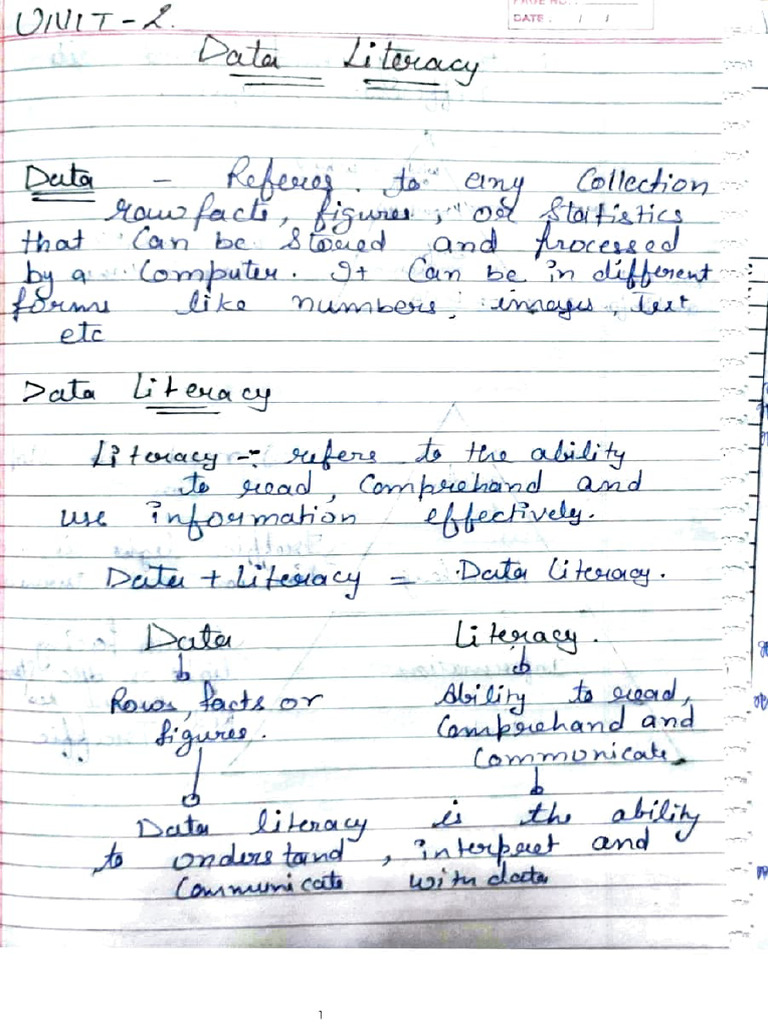 UNIT-2.
DATE: / /
Data Literacy
Data - Referes to any Collection
raw facts, figures, or Statistics
that Can be Stored and Processed
by a Computer. It Can be in different
forms like numbers, images, text
etc
Data Literacy
Literacy -: refers to the ability
to read, Comprehand and
use information effectively.
Data + Literacy = Data Literacy.
Data Literacy.
Rows, facts or Ability to read,
figures. Comprehand and
Communicate.
Data literacy is the ability
to understand, interpret and
Communicate with data
1